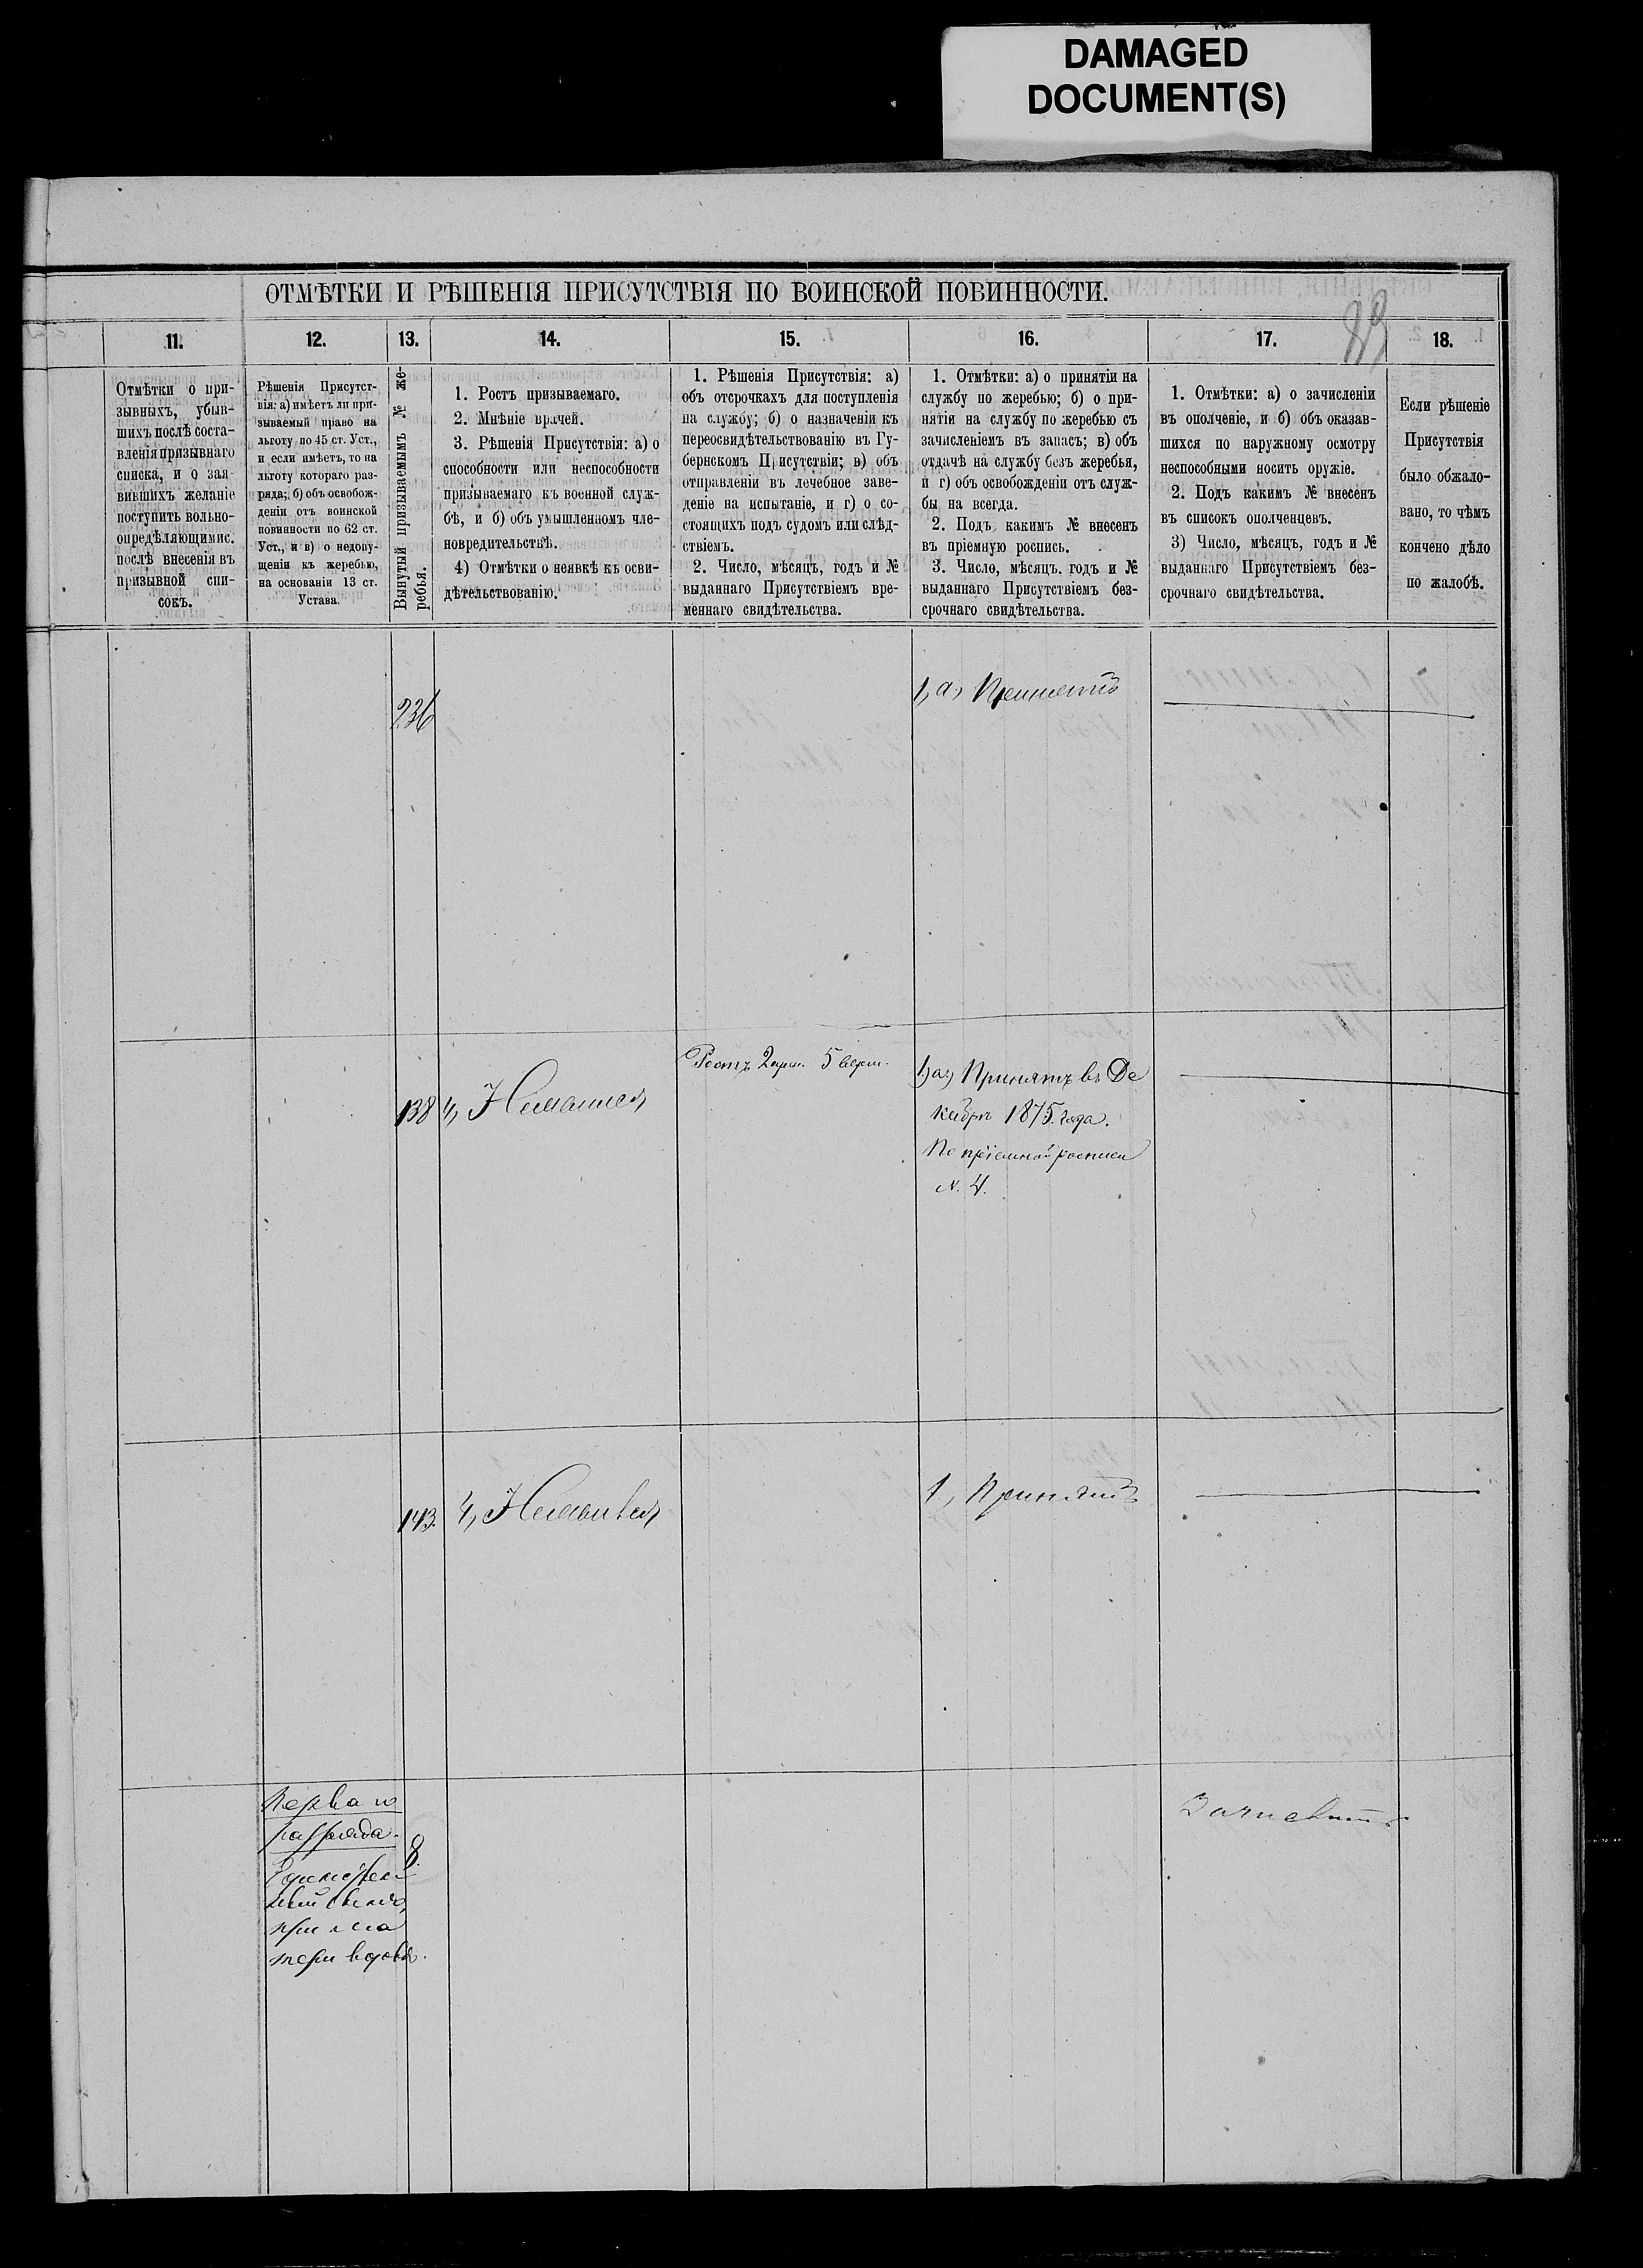 DAMAGED
DOCUMENT(S)
ОТМѢТКИ И РѢШЕНІЯ ПРИСУТСТВІЯ ПО ВОИНСКОЙ ПОВИННОСТИ.
11.
12.
13.
14.
15.
16.
17.
18.
Отмѣтки о при-
зывныхъ, убыв-
шихъ послѣ соста-
вленія призывнаго
списка, и о зая
вившихъ желаніе
поступить вольно-
опредѣляющимис.
послѣ внесенія въ
призывной спи-
сокъ.
Рѣшенія Присутст-
вія: а) имѣетъ ли при-
зываемый право на
льготу по 45 ст. Уст.,
и если имѣетъ, то на
льготу котораго раз-
ряда; б) объ освобож-
деніи отъ воинской
повинности по 62 ст.
Уст., и в) о недопу-
щеніи къ жеребью,
на основаніи 13 ст.
Устава.
Вынутый призываемымъ № же-
ребья.
1. Ростъ призываемаго.
2. Мнѣніе врачей.
3. Рѣшенія Присутствія: а) о
способности или неспособности
призываемаго къ военной служ-
бѣ, и б) объ умышленномъ чле-
новредительствѣ.
4) Отмѣтки о неявкѣ къ осви-
дѣтельствованію.
1. Рѣшенія Присутствія: а)
объ отсрочкахъ для поступленія
на службу; б) о назначеніи къ
переосвидѣтельствованію въ Гу-
бернскомъ Присутствіи; в) объ
отправленіи въ лечебное заве-
деніе на испытаніе, и г) о со-
стоящихъ подъ судомъ или слѣд-
ствіемъ.
2. Число, мѣсяцъ, годъ и №
выданнаго Присутствіемъ вре-
меннаго свидѣтельства.
1. Отмѣтки: а) о принятіи на
службу по жеребью; б) о при-
нятіи на службу по жеребью съ
зачисленіемъ въ запасъ; в) объ
отдачѣ на службу безъ жеребья,
и г) объ освобожденіи отъ служ-
бы на всегда.
2. Подъ какимъ № внесенъ
въ пріемную роспись.
3. Число, мѣсяцъ. годъ и №
выданнаго Присутствіемъ без-
срочнаго свидѣтельства.
1. Отмѣтки: а) о зачисленіи
въ ополченіе, и б) объ оказав-
шихся по наружному осмотру
неспособными носить оружіе.
2. Подъ какимъ № внесенъ
въ списокъ ополченцевъ.
3) Число, мѣсяцъ, годъ и №
выданнаго Присутствіемъ без-
срочнаго свидѣтельства.
Если рѣшеніе
Присутствія
было обжало-
вано, то чѣмъ
кончено дѣло
по жалобѣ.
236
1, а, Принятъ
138
4, Неявился,
Ростъ 2 арш. 5 верш.
1, а, Принятъ въ Де
кабрѣ 1875. года.
По пріемной росписи
N. 4.
143.
4, Неявился,
1, Принятъ
Перваго
разряда.
Единствен
ный сынъ
при ма
тери вдовѣ.
8.